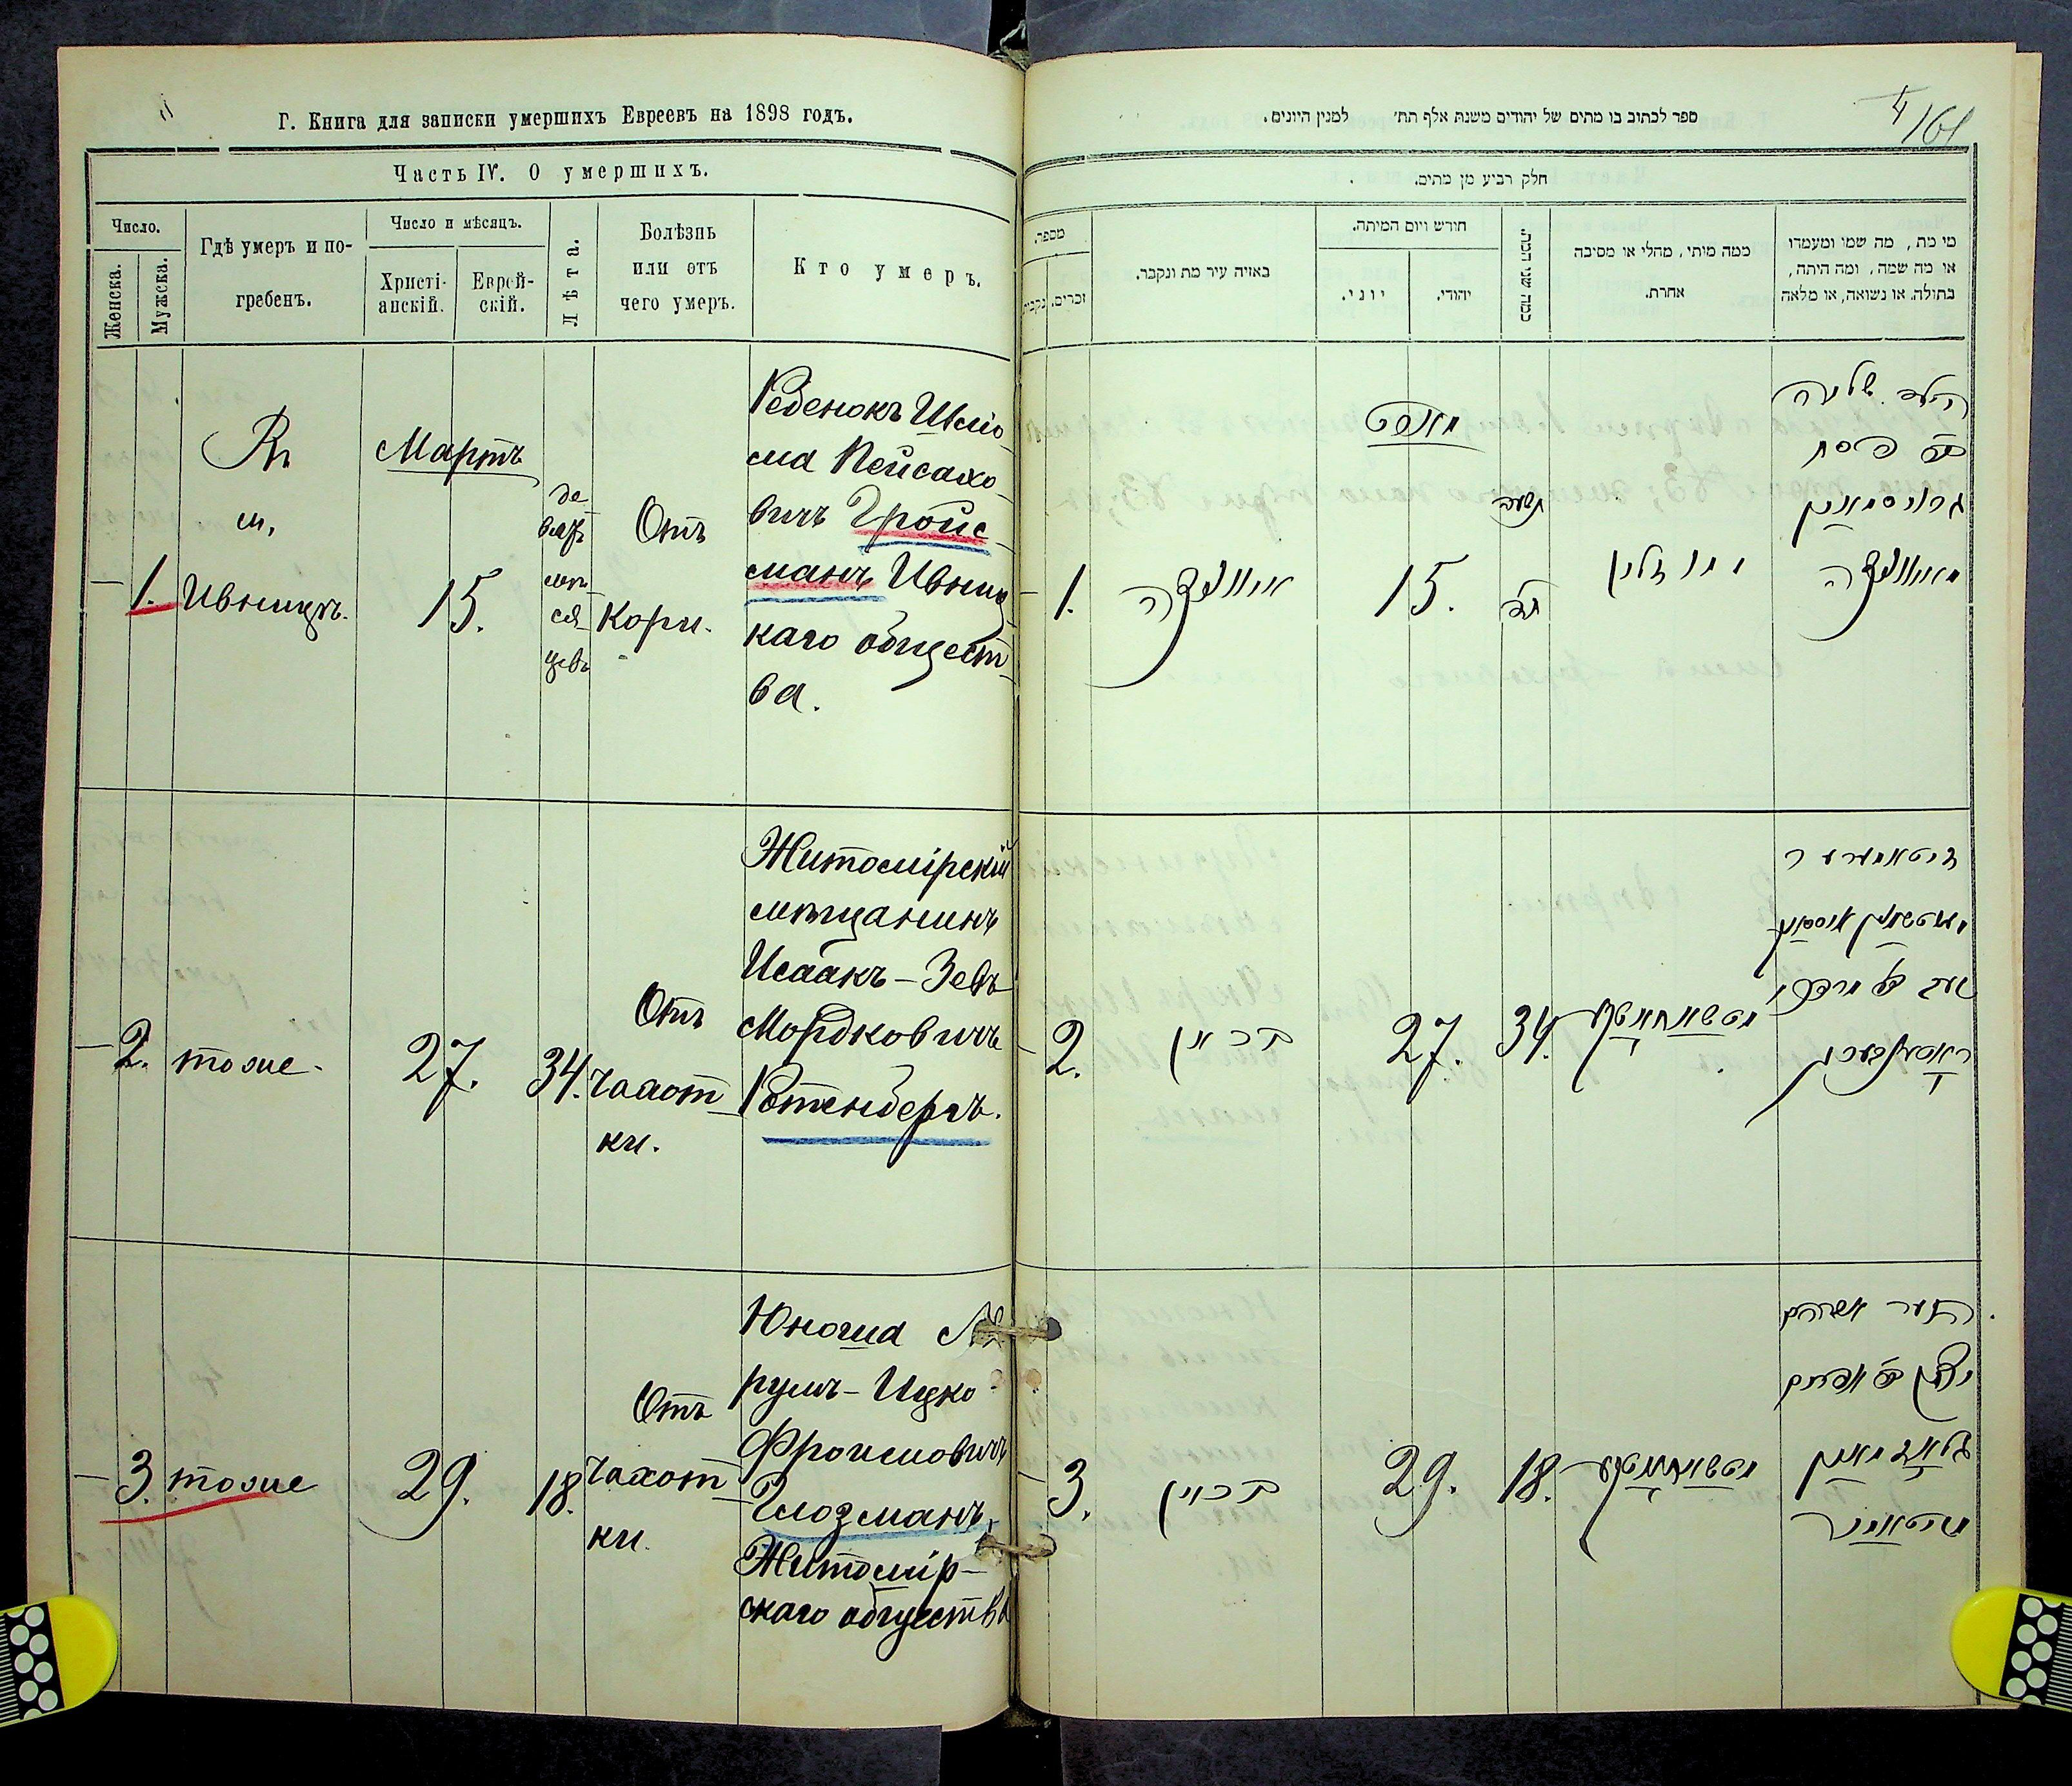 Г. Книга для записки умершихъ Евреевъ на 1898 годъ.
Часть IV. О умершихъ.
Число.
Женска.
Мужска.
Гдѣ умеръ и по-
гребенъ.
Число и мѣсяцъ.
Христі-
анскій.
Еврей-
скій.
Лѣта.
Болѣзнь
или отъ
чего умеръ.
Кто умеръ.
1.
Въ
м.
Ивницѣ.
Мартъ
15.
де
вять
мѣ
ся
цевъ
Отъ
кори.
Ребенокъ Шлио
ма Пейсахо-
вичъ Гройс-
манъ Ивниц
каго общест
ва.
2.
тоже.
27.
34.
Отъ
чахот
ки.
Житомірскій
мѣщанинъ
Исаакъ-Зевъ
Мордковичъ
Ротенбергъ.
3.
тоже
29.
18.
Отъ
чахот
ки.
Юноша Ав
румъ-Ицко
Фроимовичъ
Глозманъ,
Житомір-
скаго общества
ספר לכתוב בו מתים של יהודים משנת אלף תת׳ למנין היונים.
4/161
חלק רביע מן מתים.
מספר.
זכרים.
נקבות
באזיה עיר מת ונקבר.
חורש ויום המיתה.
יוני.
יהודי.
כמה שני המת.
ממה מותי, מהלי או מסיבה
אחרת.
מי מת, מה שמו ומעמדו
או מה שמה, ומה היתה,
בתולה. או נשואה, או מלאה
1.
איווניצה
מארט
15.
הילד שלמה
בר פסח
גרויסמאן
מאיווניצה
2.
כנ״ל
27.
34.
זיטאמירער
3.
29.
18.
הנער אברהם
יצחק בר אפרים
גלאזמאן